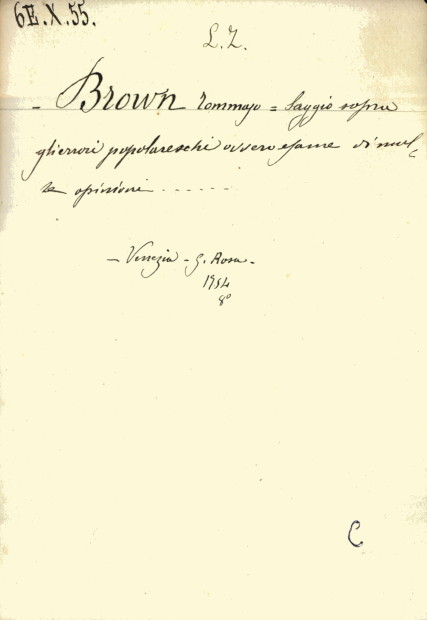 6E.X.55.
L.Z.
- Brown Tommaso = Saggio sopra
gli errori popolareschi ovvero esame di mol-
te opinioni ......
- Venezia - G. Rosa -
1754
8°
C